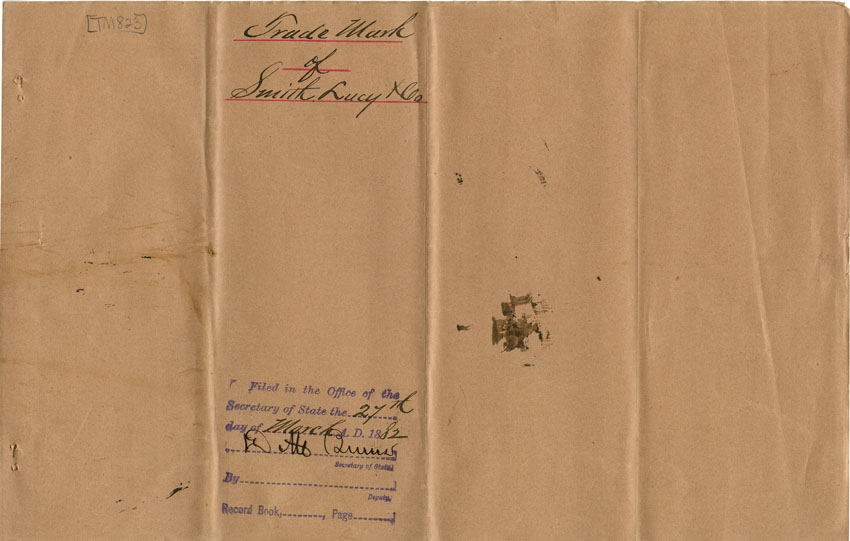 [TM823]
Trade Mark
of
Smith, Lucy & Co
Filed in the Office of the
Secretary of State the 27th
day of March A. D. 1882
Secretary of State
By
Deputy.
Record Book, Page